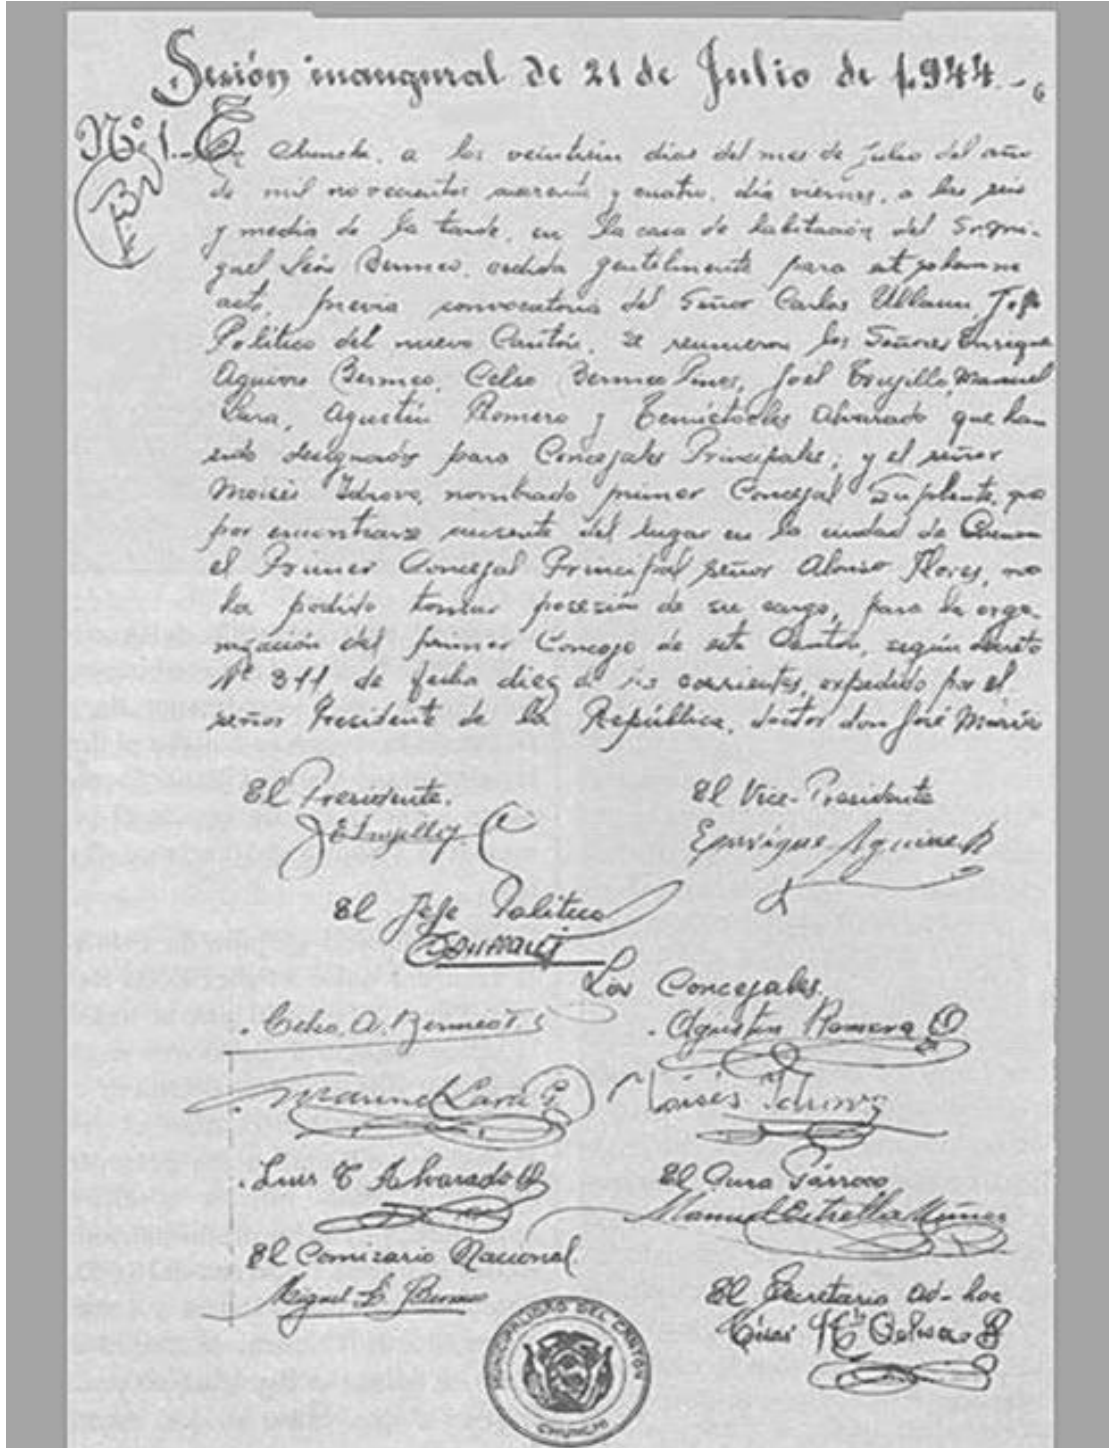 Sesión inaugural de 21 de Julio de 1.944.-
Nº 1.- En Chunchi, a los veintiún dias del mes de julio del año
de mil novecientos cuarenta y cuatro, día viernes, a las seis
y media de la tarde, en la casa de habitación del Sr. Mi-
guel León Bermeo, cedida gentilmente para este solemne
acto, previa convocatoria del Señor Carlos Jefe
Político del nuevo Cantón, se reunieron los Señores Enrique
Aguirre Bermeo, Celso Bermeo Joel Trujillo, Manuel
Lara, Agustín Romero y Temístocles Alvarado que han
sido designados para Concejales Principales; y el señor
Moisés Idrovo, nombrado primer Concejal Suplente, que
por encontrarse ausente del lugar en la ciudad de Cuenca
el Primer Concejal Principal señor Alonso Flores, no
ha podido tomar posesión de su cargo, para la orga-
nización del primer Concejo de este Cantón, según decreto
Nº 311, de fecha diez de los corrientes, expedido por el
señor Presidente de la República, doctor don José María
El Presidente.
El Vice-Presidente
JETrujillo
Enrique Aguirre B
El Jefe Politico
Los Concejales.
Celso A. Bermeo
Agustin Romero O
Manuel Lara G.
Moisés Idrovo
Luis T Alvarado
El Cura Párroco
Manuel Estrella Núñez
El Comisario Nacional.
Miguel L. Bermeo
El Secretario ad-hoc
MUNICIPALIDAD DEL CANTON
CHUNCHI